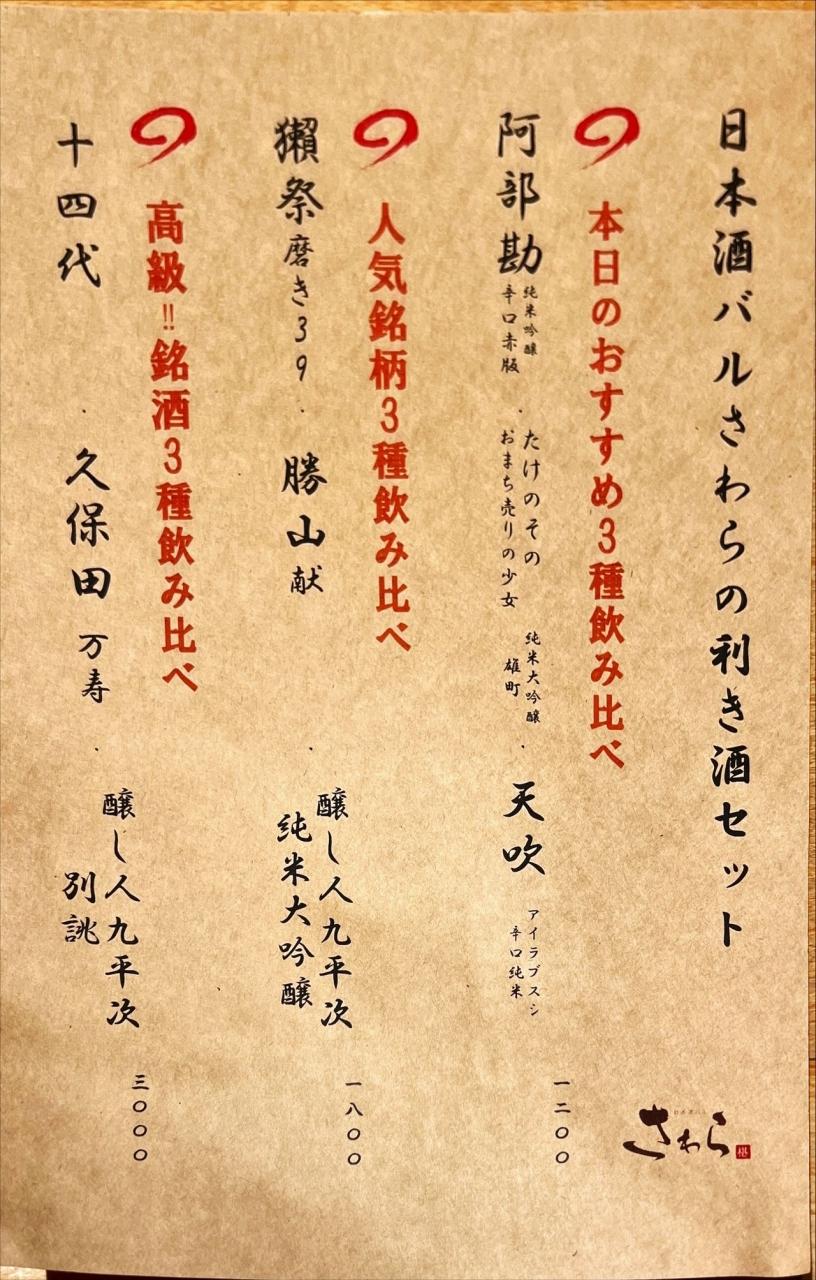 日本酒バルさわらの利き酒セット
本日のおすすめ3種飲み比べ
阿部勘 純米吟醸
辛口赤版
・
たけのその
おまち売りの少女
純米大吟醸
雄町
・
天吹 アイラブスシ
辛口純米
一二〇〇
人気銘柄3種飲み比べ
獺祭磨き39 ・ 勝山献 ・
醸し人九平次
純米大吟醸
一八〇〇
高級!!銘酒3種飲み比べ
十四代 ・ 久保田 万寿 ・
醸し人九平次
別誂
三〇〇〇
さわら